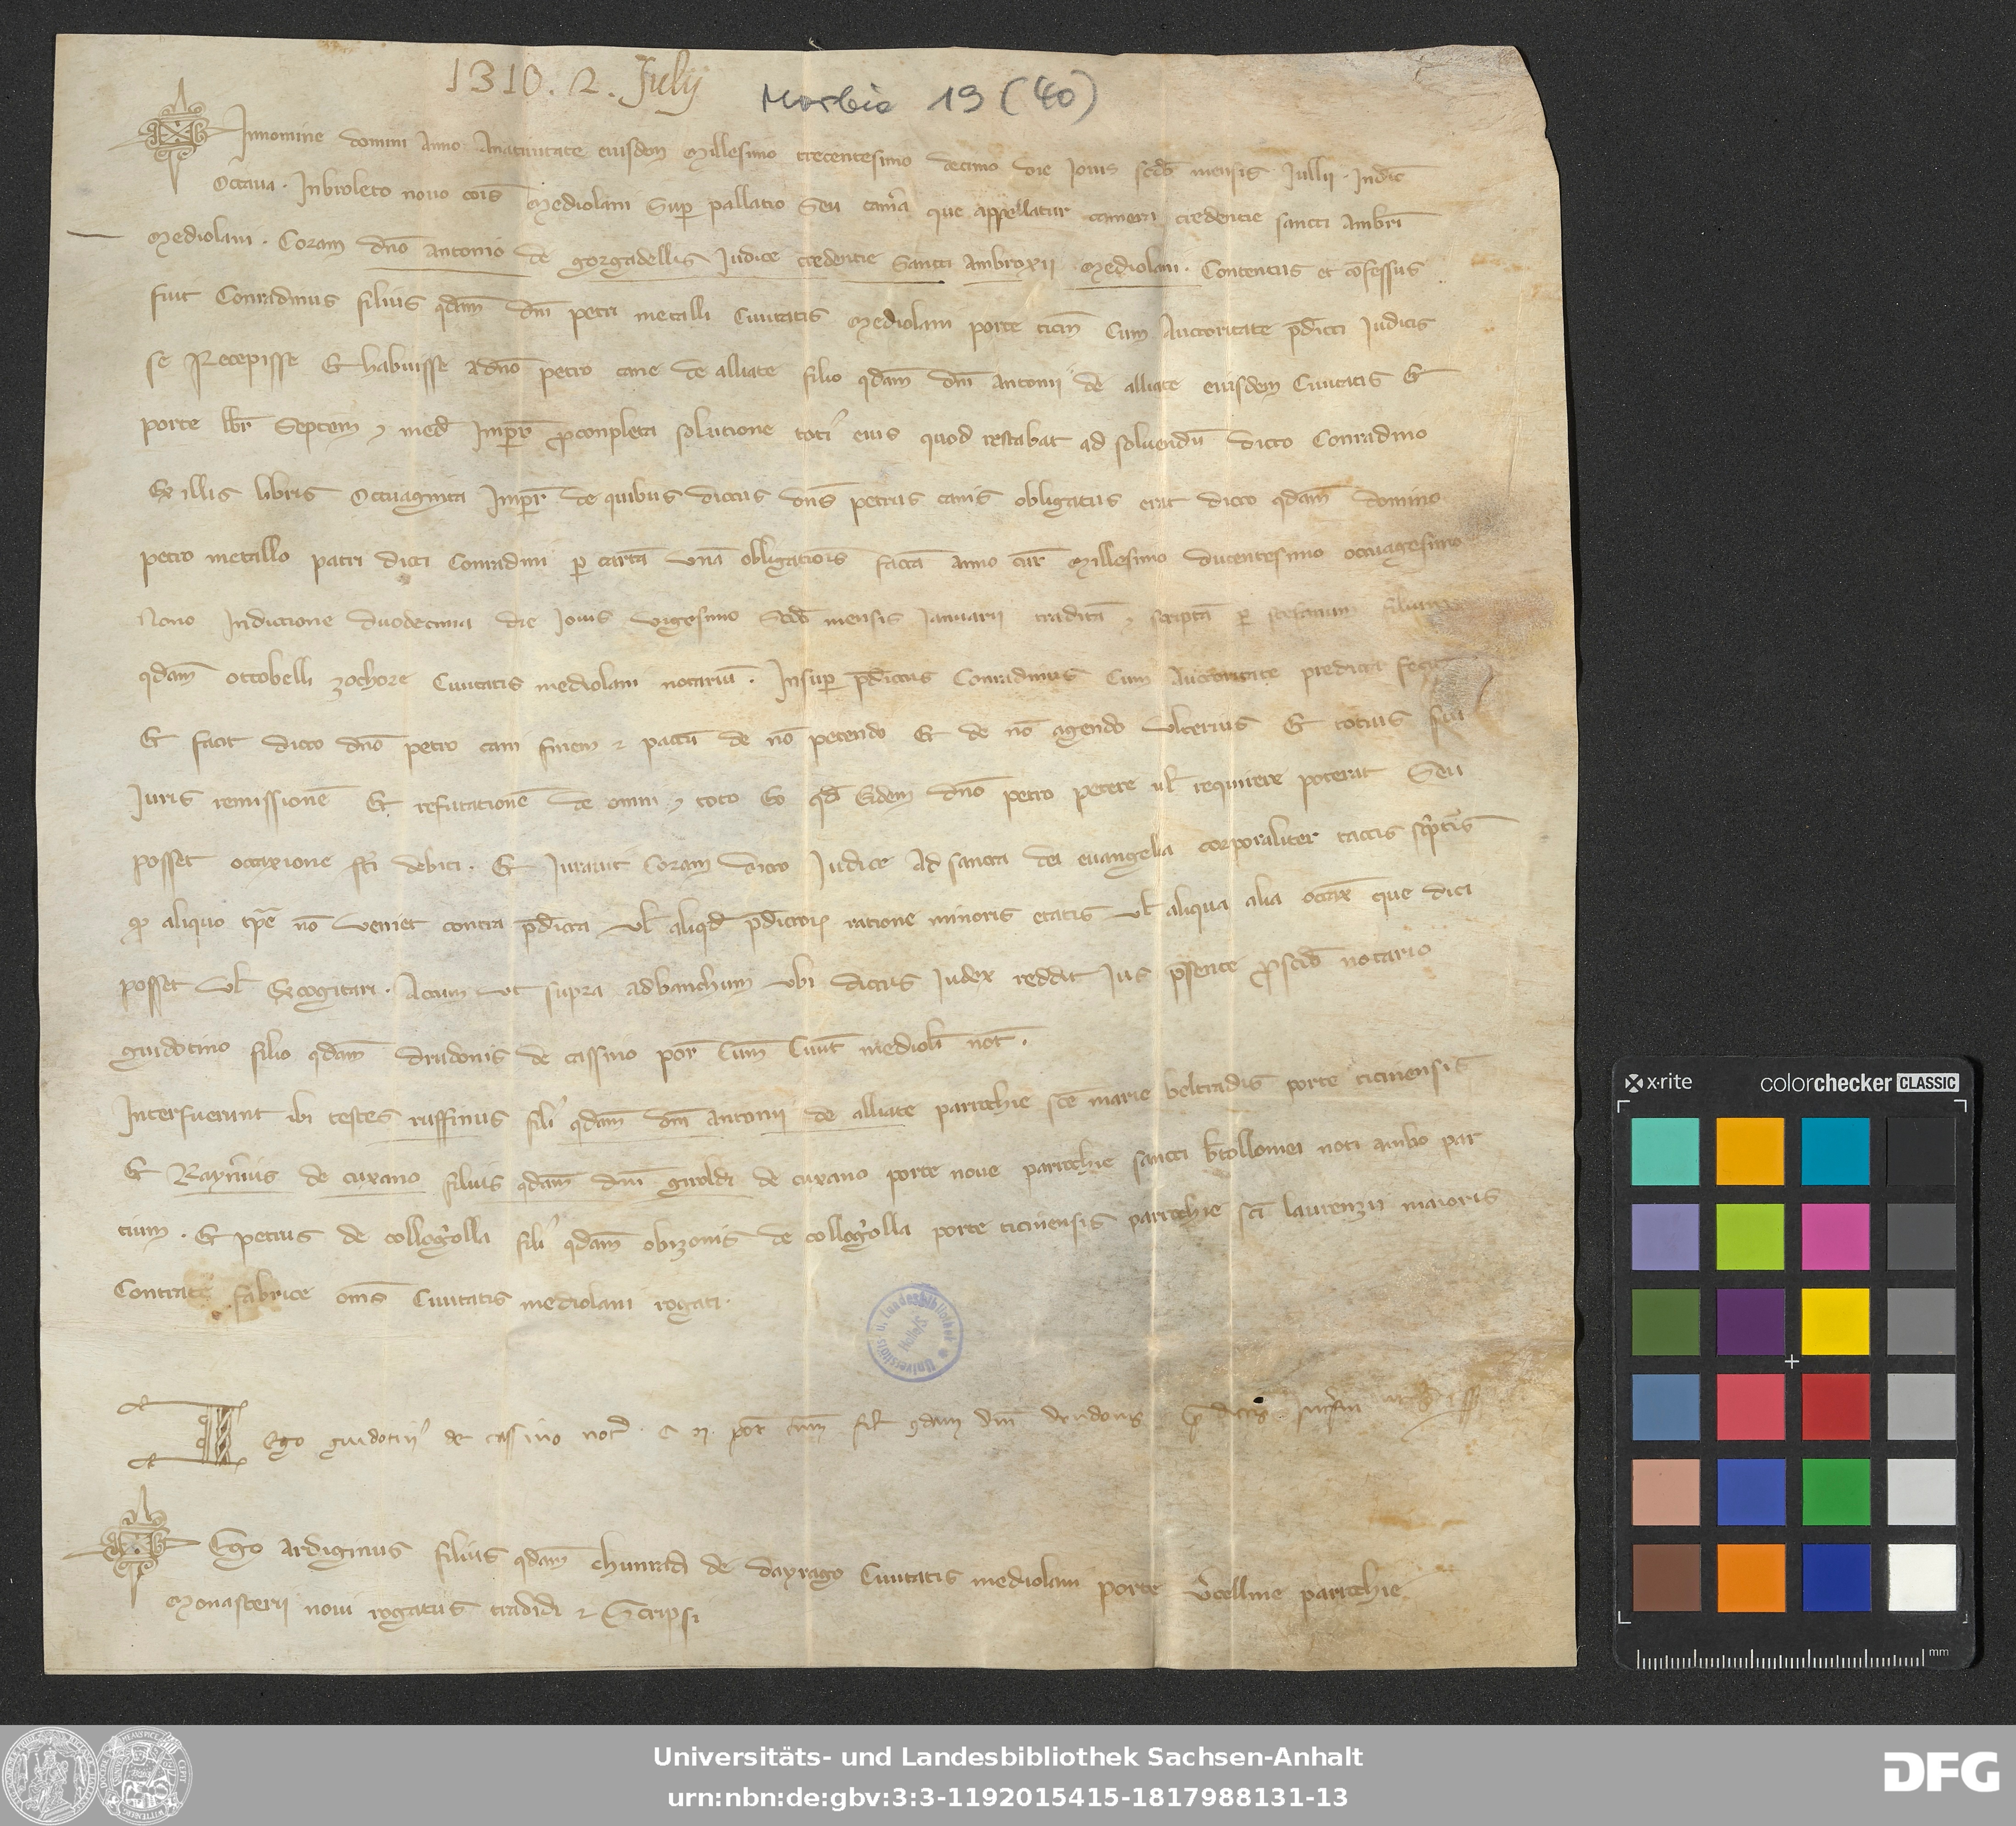 1310. 2. July
Morbio 19 (40)
Innomine domini anno Anativitate eiusdem Millesimo trecentesimo decimo die Jovis scdo mensis Jullii. Indic
Octava. Inbroleto novo cois Mediolani Sup pallatio Seu cama que appellatur camera credentie sancti ambri
Mediolani. Coram dno antonio de gorgadellis Judice credentie Sancti ambroxii Mediolani. Contentus et cofessus
fuit Conradinus filius qdam dni petri metalli Civitatis Mediolani porte ticin Cum Auctoritate pdicti Judicis
se Recepisse Et habuisse adno petro cane de alliate filio qdam dni antonii de alliate eiusdem Civitatis Et
porte lbr Septem et med Imper pconpleta solutione toti eius quod restabat ad solvendu dicto Conradino
Ex illis libris Octuaginta Imper de quibus dictus dns petrus canis obligatus erat dicto qdam domino
petro metallo patri dicti Conradini p carta una obligatiois facta anno cur Millesimo ducentesimo octuagesimo
Nono Indictione duodecima die Jovis vigesimo Scdo mensis Januarii tradita et scripta p stefanum filium
qdam ottobelli zochore Civitatis mediolani notariu. Insup pdictus Conradinus Cum Auctoritate predicta fecit
Et facit dicto dno petro cani finem et pactu de no petendo Et de no agendo ulterius Et totius sui
Juris remissione Et refutatione de omni et toto Eo qd Eidem dno petro petere ul requirere poterat Seu
posset occaxione sti debiti. Et Juravit Coram dicto Judice Ad sancta dei evangelia corporaliter tactis scptis
qp aliquo tpe no veniet contra pdicta ul aliqd pdictor ratione minoris etatis ul aliqua alia occax que dici
posset ul Excogitari. Actum ut supra adbanchum ubi dictus Judex reddit Jus psente pscdo notario
guidotino filio qdam drudonis de cassino por Cum Civit mediol not.
Interfuerunt ibi testes ruffinus fili qdam dni antonii de alliate parochie sce marie beltradis porte ticinensis
Et Raynerius de cuxano filius qdam dni giroldi de cuxano porte nove parochie sancti btollomei noti ambo par
tium. Et petrus de collogolla fili qdam obizonis de collogolla porte ticinensis parochie sci laurenzii maioris
Contrate fabrice oms Civitatis mediolani rogati.
Universitäts u. Landesbibliothek Halle/S
Ego guidotin de cassino not. C M por cum fil qdam dni drudonis pdictis
Ego ardiginus filius qdam chunradi de dayrago Civitatis mediolani porte vcelline parochie
Monasterii novi rogatus tradidi et Scripsi
x·rite colorchecker CLASSIC
mm
Universitäts- und Landesbibliothek Sachsen-Anhalt
urn:nbn:de:gbv:3:3-1192015415-1817988131-13
DFG